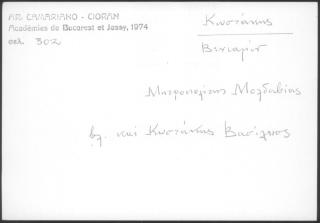 AR. CAMARIANO - CIORAN
Académies de Bucarest et Jassy, 1974
σελ. 302
Κωστάκης
Βενιαμίν
Μητροπολίτης Μολδαβίας
βλ. και Κωστάκης Βασίλειος